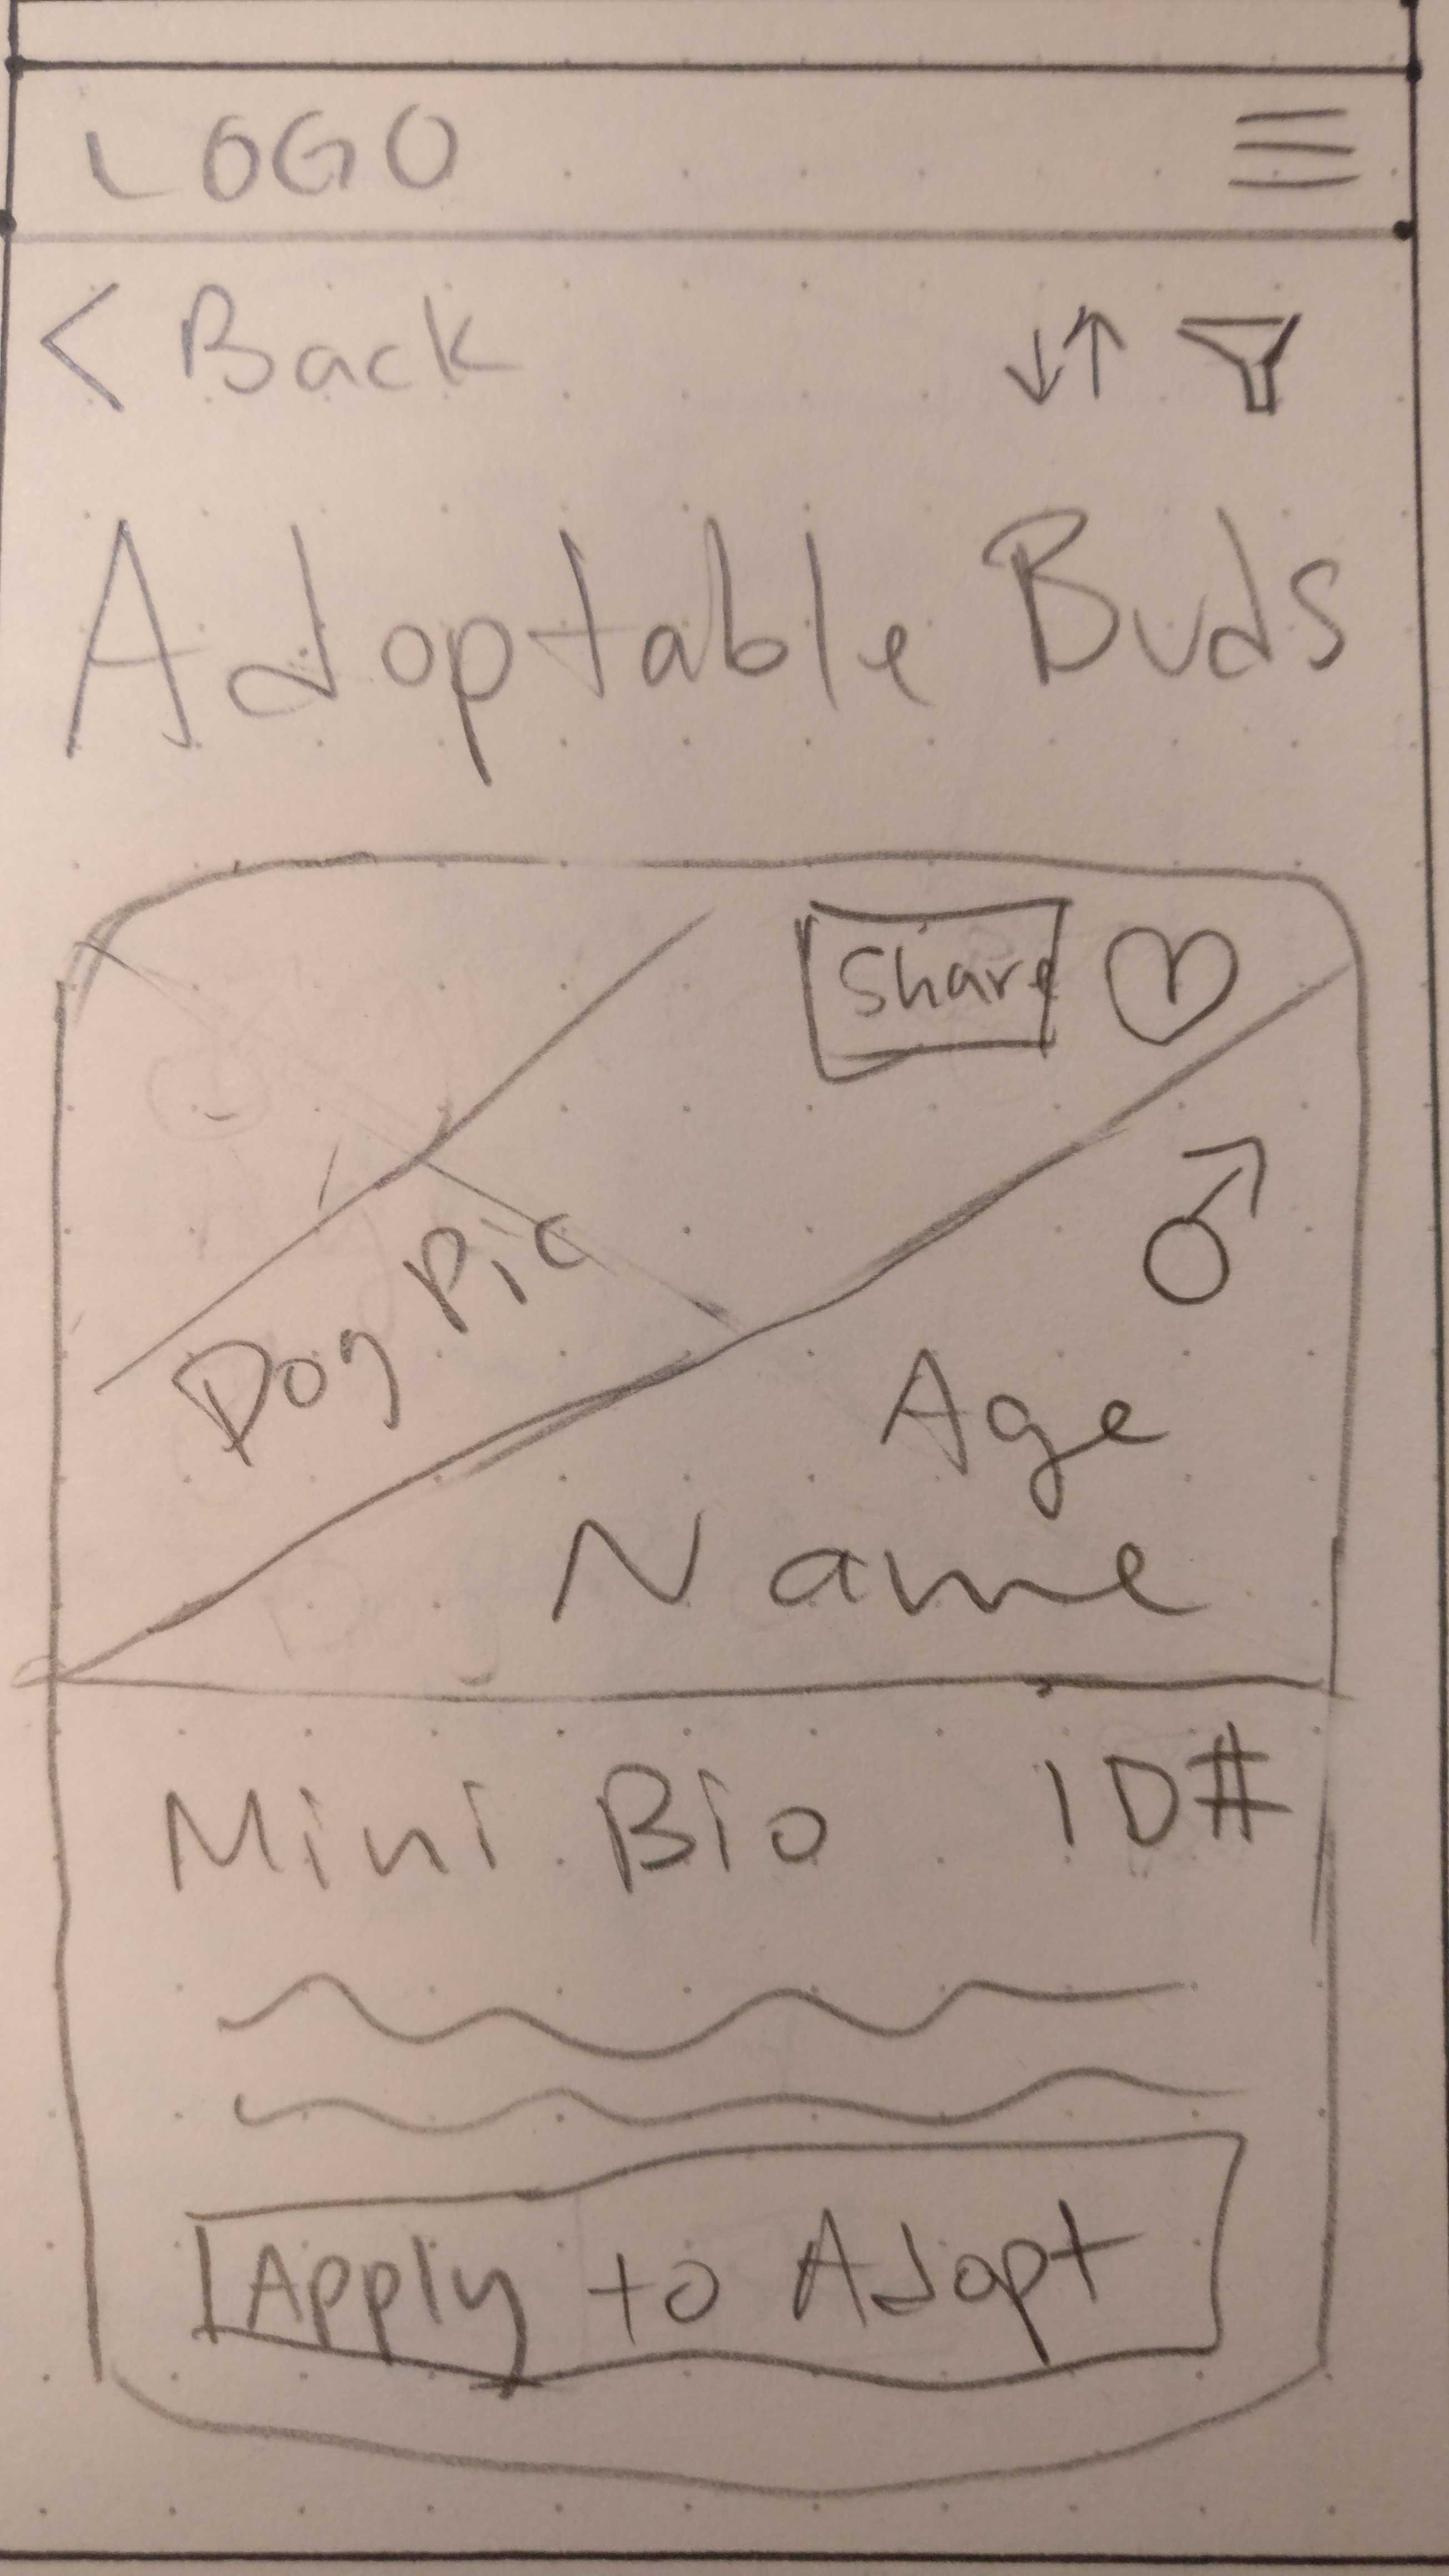 LOGO
< Back
Adoptable Buds
Share
Dog Pic
Age
Name
Mini Bio ID#
Apply to Adopt